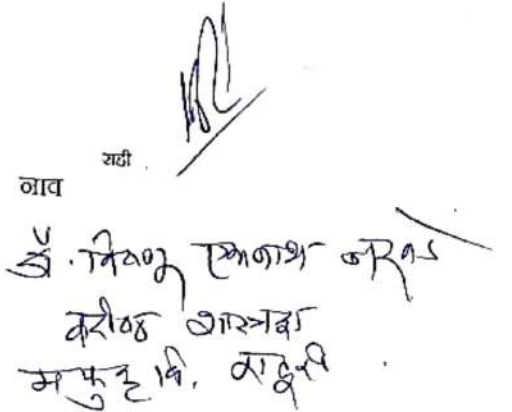 सही
नाव
डॉ. विष्णू एकनाथ नरवडे
वरीष्ठ शास्त्रज्ञ
म फु कृ वि. राहूरी